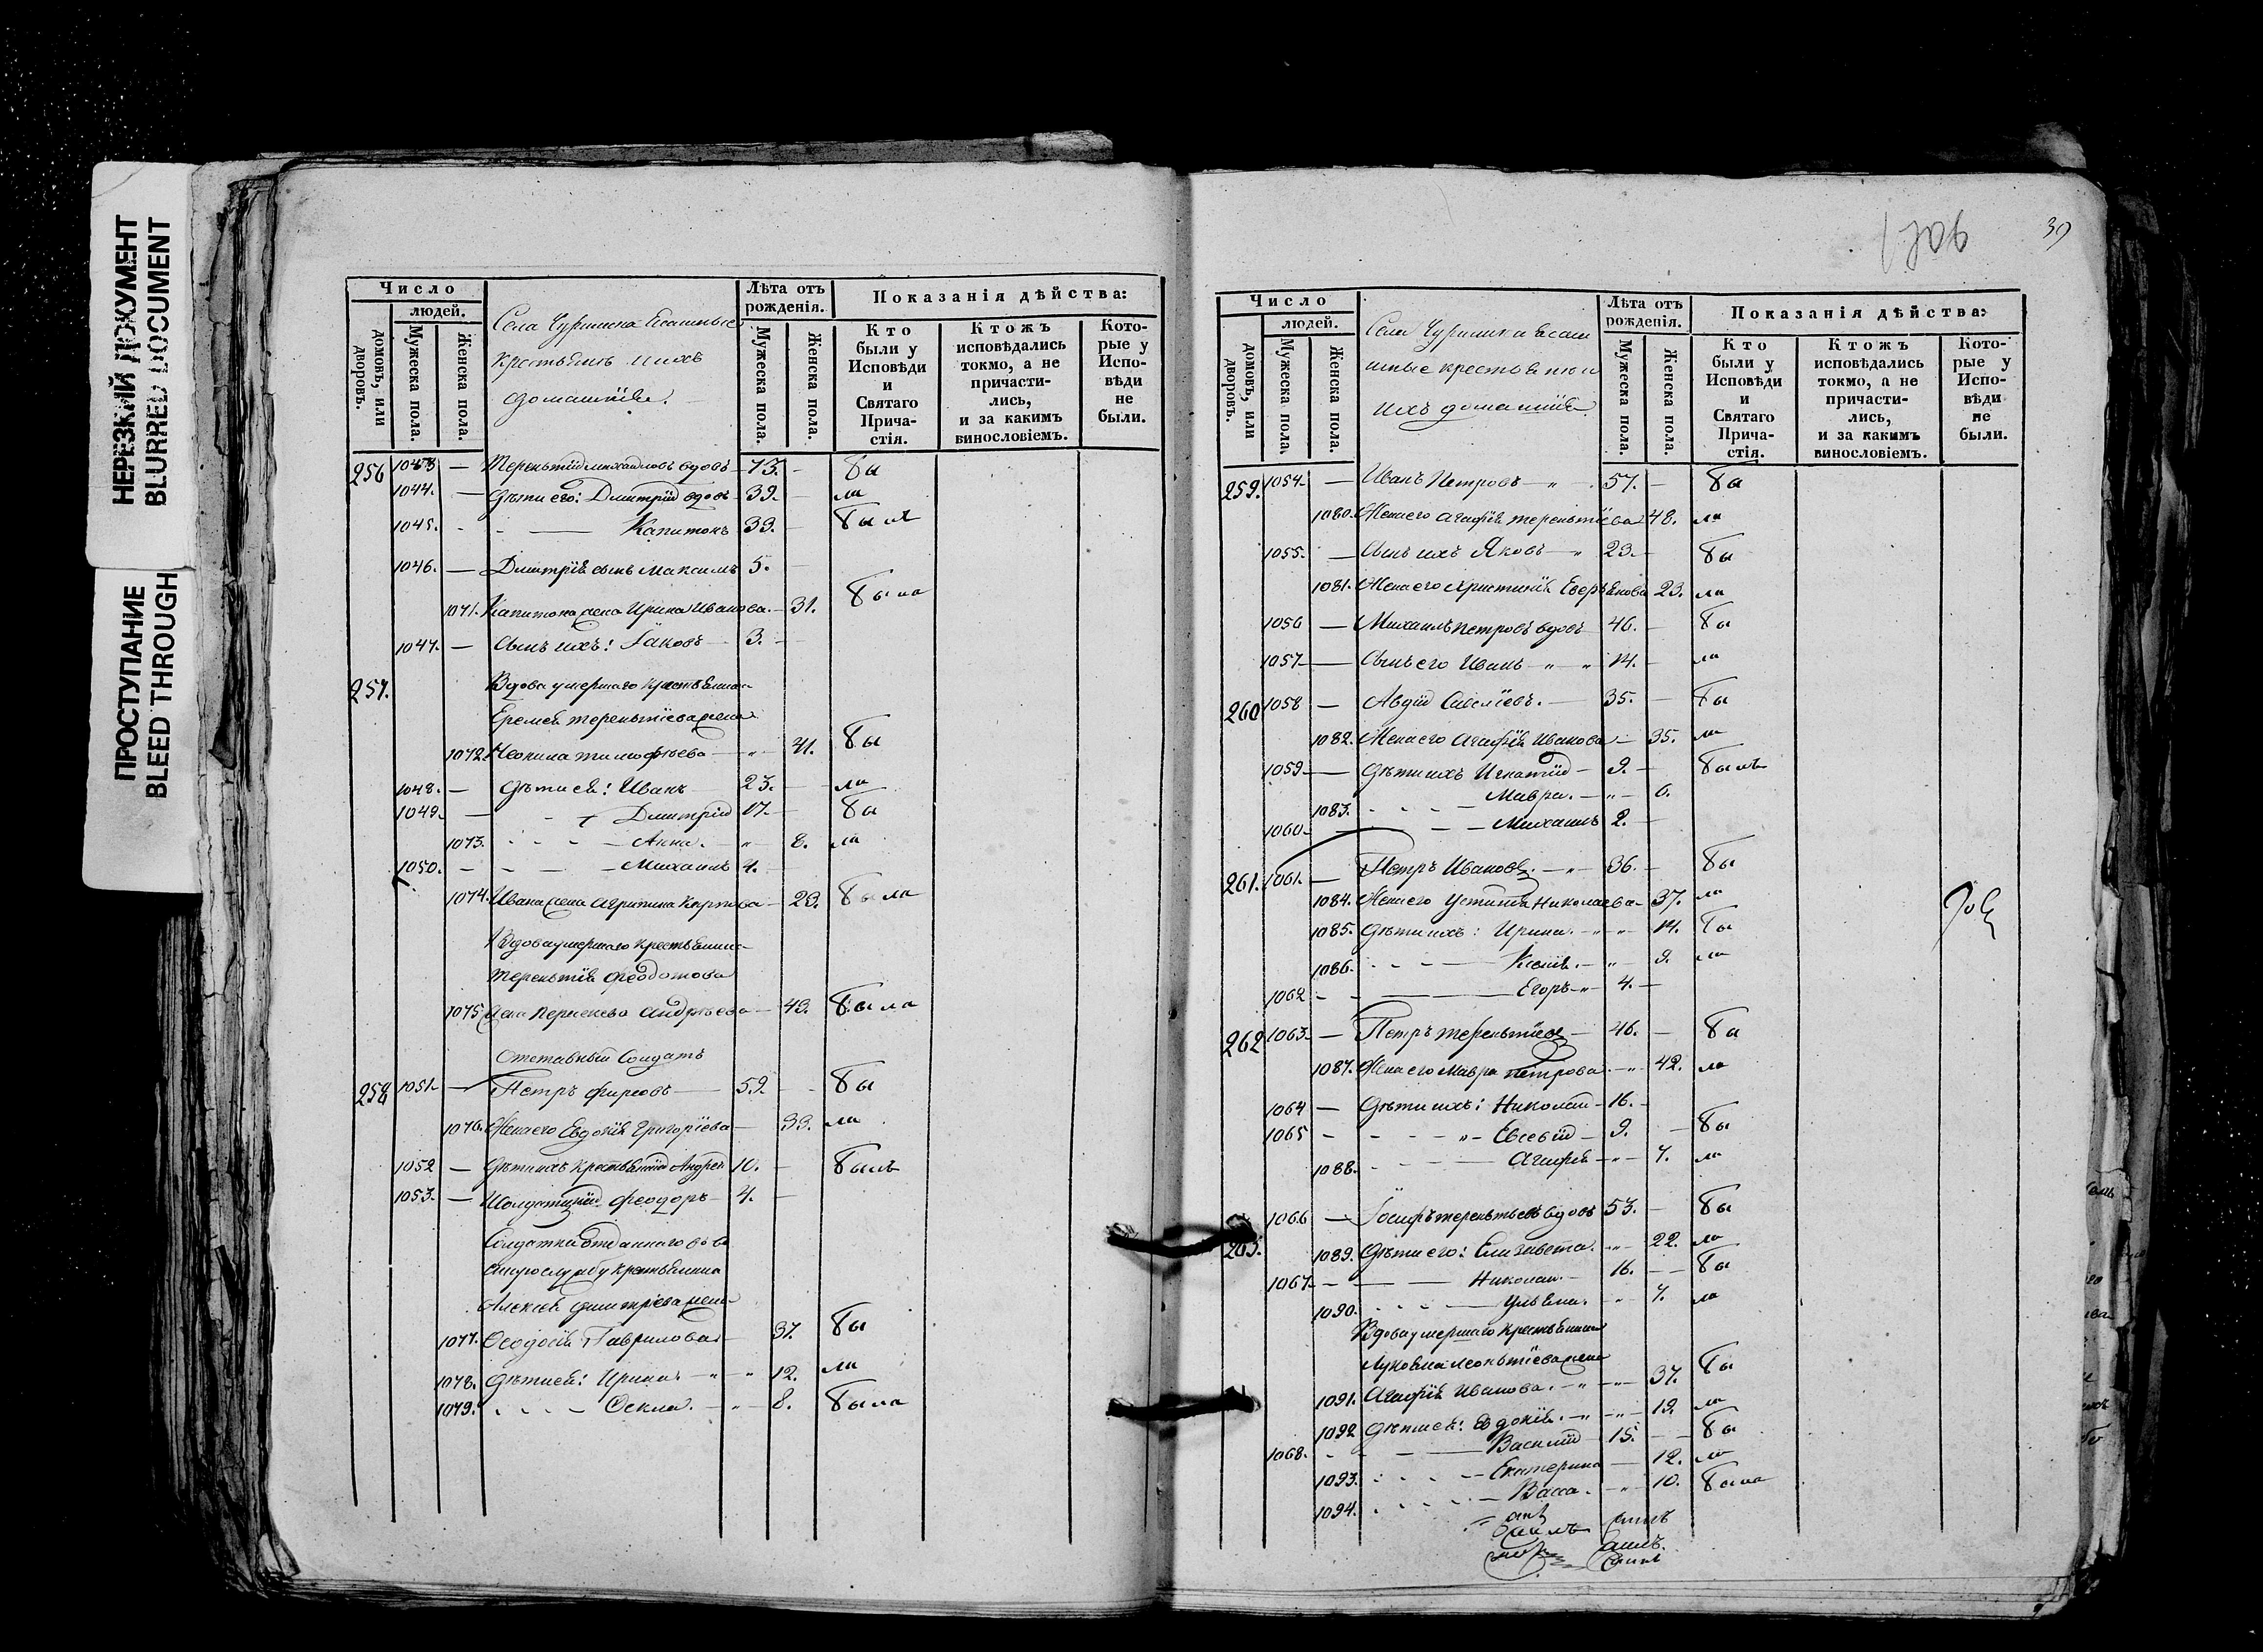 НЕРЕЗКИЙ ДОКУМЕНТ
BLURRED DOCUMENT
ПРОСТУПАНИЕ
BLEED THROUGH
Число
людей.
домовъ, или дворовъ.
Мужеска пола.
Женска пола.
крестьянъ и ихъ
домашніе.
Лѣта отъ рожденія.
Мужеска пола.
Женска пола.
Показанія дѣйства:
Кто были у Исповѣди и Святаго Прича-стія.
Ктожъ исповѣдались токмо, а не причасти-лись, и за какимъ винословіемъ.
Кото-рые у Испо-вѣди не были.
256 1043 — Терентій Михайловъ вдовъ — 73. — бы
1044. — Дѣти его: Димитрій вдовъ 39. — ли
1045. - - — Капитонъ 33. — былъ
1046. — Димитрія сынъ Максимъ 5. —
1071. Капитона жена Ирина Иванова — 31. была
1047. — Сынъ ихъ: Іаковъ — 3. —
257. Вдова умершаго крестьянина
Еремея Терентіева жена
1072. Неонила Тимофѣева — „ 41. бы
1048. — Дѣти ея: Иванъ 23. — ли
1049. — Димитрій 17. — бы
1073. - - - — Анна. — „ 8. ли
1050. - - - — Михаилъ 4.
1074. Ивана жена Агрипина Карпова — 23. была
Вдова умершаго крестьянина
Терентія Феодотова
1075. жена Парасκева Андрѣева — 43. была
Отставный Солдатъ
258 1051 — Петръ Фирсовъ — 59. — бы
1076. Жена его Евдокія Григоріева — 33. ли
1052 — Дѣти ихъ крестьянскій Андрей 10. — былъ
1053. — Солдатскій Феодоръ — 4. —
Алексѣя Димитріева жена
1077. Феодосія Гаврилова — 37 бы
1078. Дѣти ея: Ирина — „ „ 12. ли
1079. - - - — Фекла. — „ 8. была
39
Число
людей.
домовъ, или дворовъ.
Мужеска пола.
Женска пола.
ихъ домашніе
Лѣта отъ рожденія.
Мужеска пола.
Женска пола.
Показанія дѣйства:
Кто были у Исповѣди и Святаго Прича-стія.
Ктожъ исповѣдались токмо, а не причасти-лись, и за какимъ винословіемъ.
Кото-рые у Испо-вѣди не были.
259. 1054 — Иванъ Петровъ — „ — 57. — бы
1080. Жена его Агафія Терентіева 48. ли
1055. — Сынъ ихъ Яковъ — „ 23. — бы
1081. Жена его Христинія 23. ли
1056 — Михаилъ Петровъ вдовъ 46. — бы
1057 — Сынъ его Иванъ „ „ 14. — ли
260 1058 — Авдій Савеліевъ. — 35. — бы
1082. Жена его Агафія Иванова — 35. ли
1059 — Дѣти ихъ Игнатій — 9. — былъ
1083. - - - — Мавра. — „ — 6.
1060 — — Михаилъ 2. —
261. 1061. — Петръ Ивановъ. — „ — 36. — бы
1084. Жена его Устинія Николаева — 37. ли
1085. Дѣти ихъ: Ирина. — „ — 14. бы
1086. - - - — Ксенія. — „ 9. ли
1062 - - — Егоръ — „ 4. —
262 1063 — Петръ Терентіевъ — 46. — бы
1087. Жена его Мавра Петрова. — „ 42. ли
1064 — Дѣти ихъ: Николай — 16. —
1065 - - - „ — Евсевій — 9. — бы
1088. - - - — Агафія — „ 7. ли
1066 — Іосифъ Терентьевъ вдовъ 53. — бы
263. 1089. Дѣти его: Елизавета. „ 22. ли
1067 - — Николай. — 16. — бы
1090. - - - — Ульяна. — „ 7. ли
Вдова умершаго крестьянина
жена
1091. Агафія Иванова. — „ — 37. бы
1092 Дѣти ея: Евдокія. — „ — 19. ли
1068. - - — Василій 15. — бы
1093. - - - — Екатерина — 12. ли
1094. - - - — Васса. — „ — 10. была